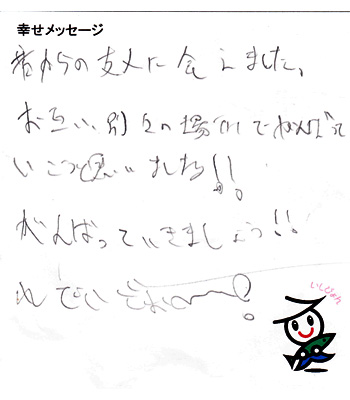 幸せメッセージ
昔からの友人に会えました。
お互い、別々の場所でがんばって
いこうと思いました!!
がんばっていきましょう!!
いしぴょん